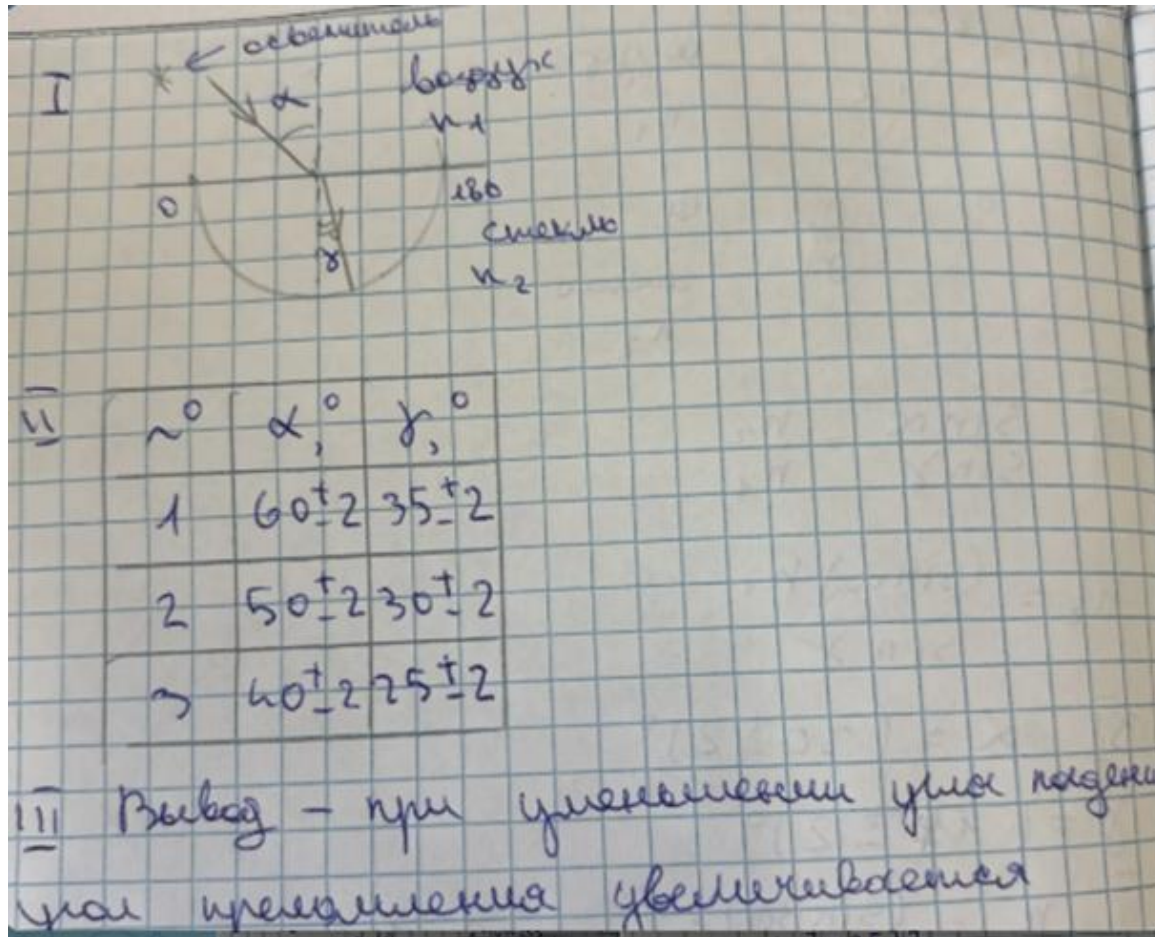 I
осветитель
α
воздух
n1
0
180
стекло
γ
n2
II
№ α,° γ,°
1 60±2 35±2
2 50±2 30±2
3 40±2 25±2
III Вывод – при уменьшении угла падени
угол преломления увеличивается